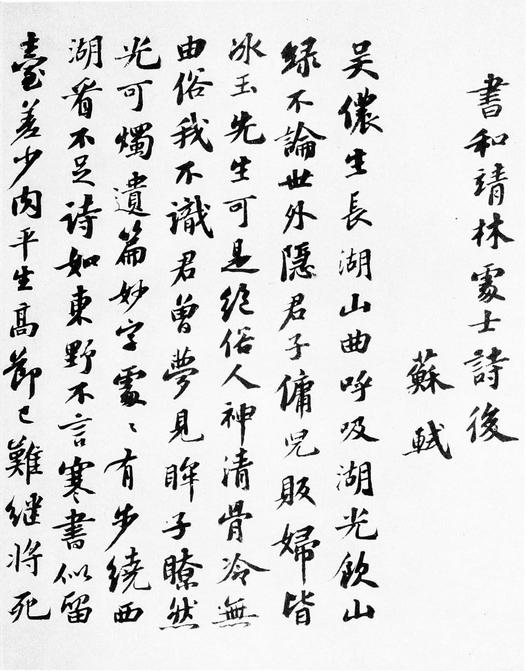 書和靖林處士詩後
蘇軾
吳儂生長湖山曲呼吸湖光飲山
緑不論世外隱君子傭兒販婦皆
冰玉先生可是絕俗人神清骨冷無
由俗我不識君曾夢見眸子瞭然
光可燭遺篇妙字處〻有步繞西
湖看不足詩如東野不言寒書似留
臺差少肉平生高節已難繼將死